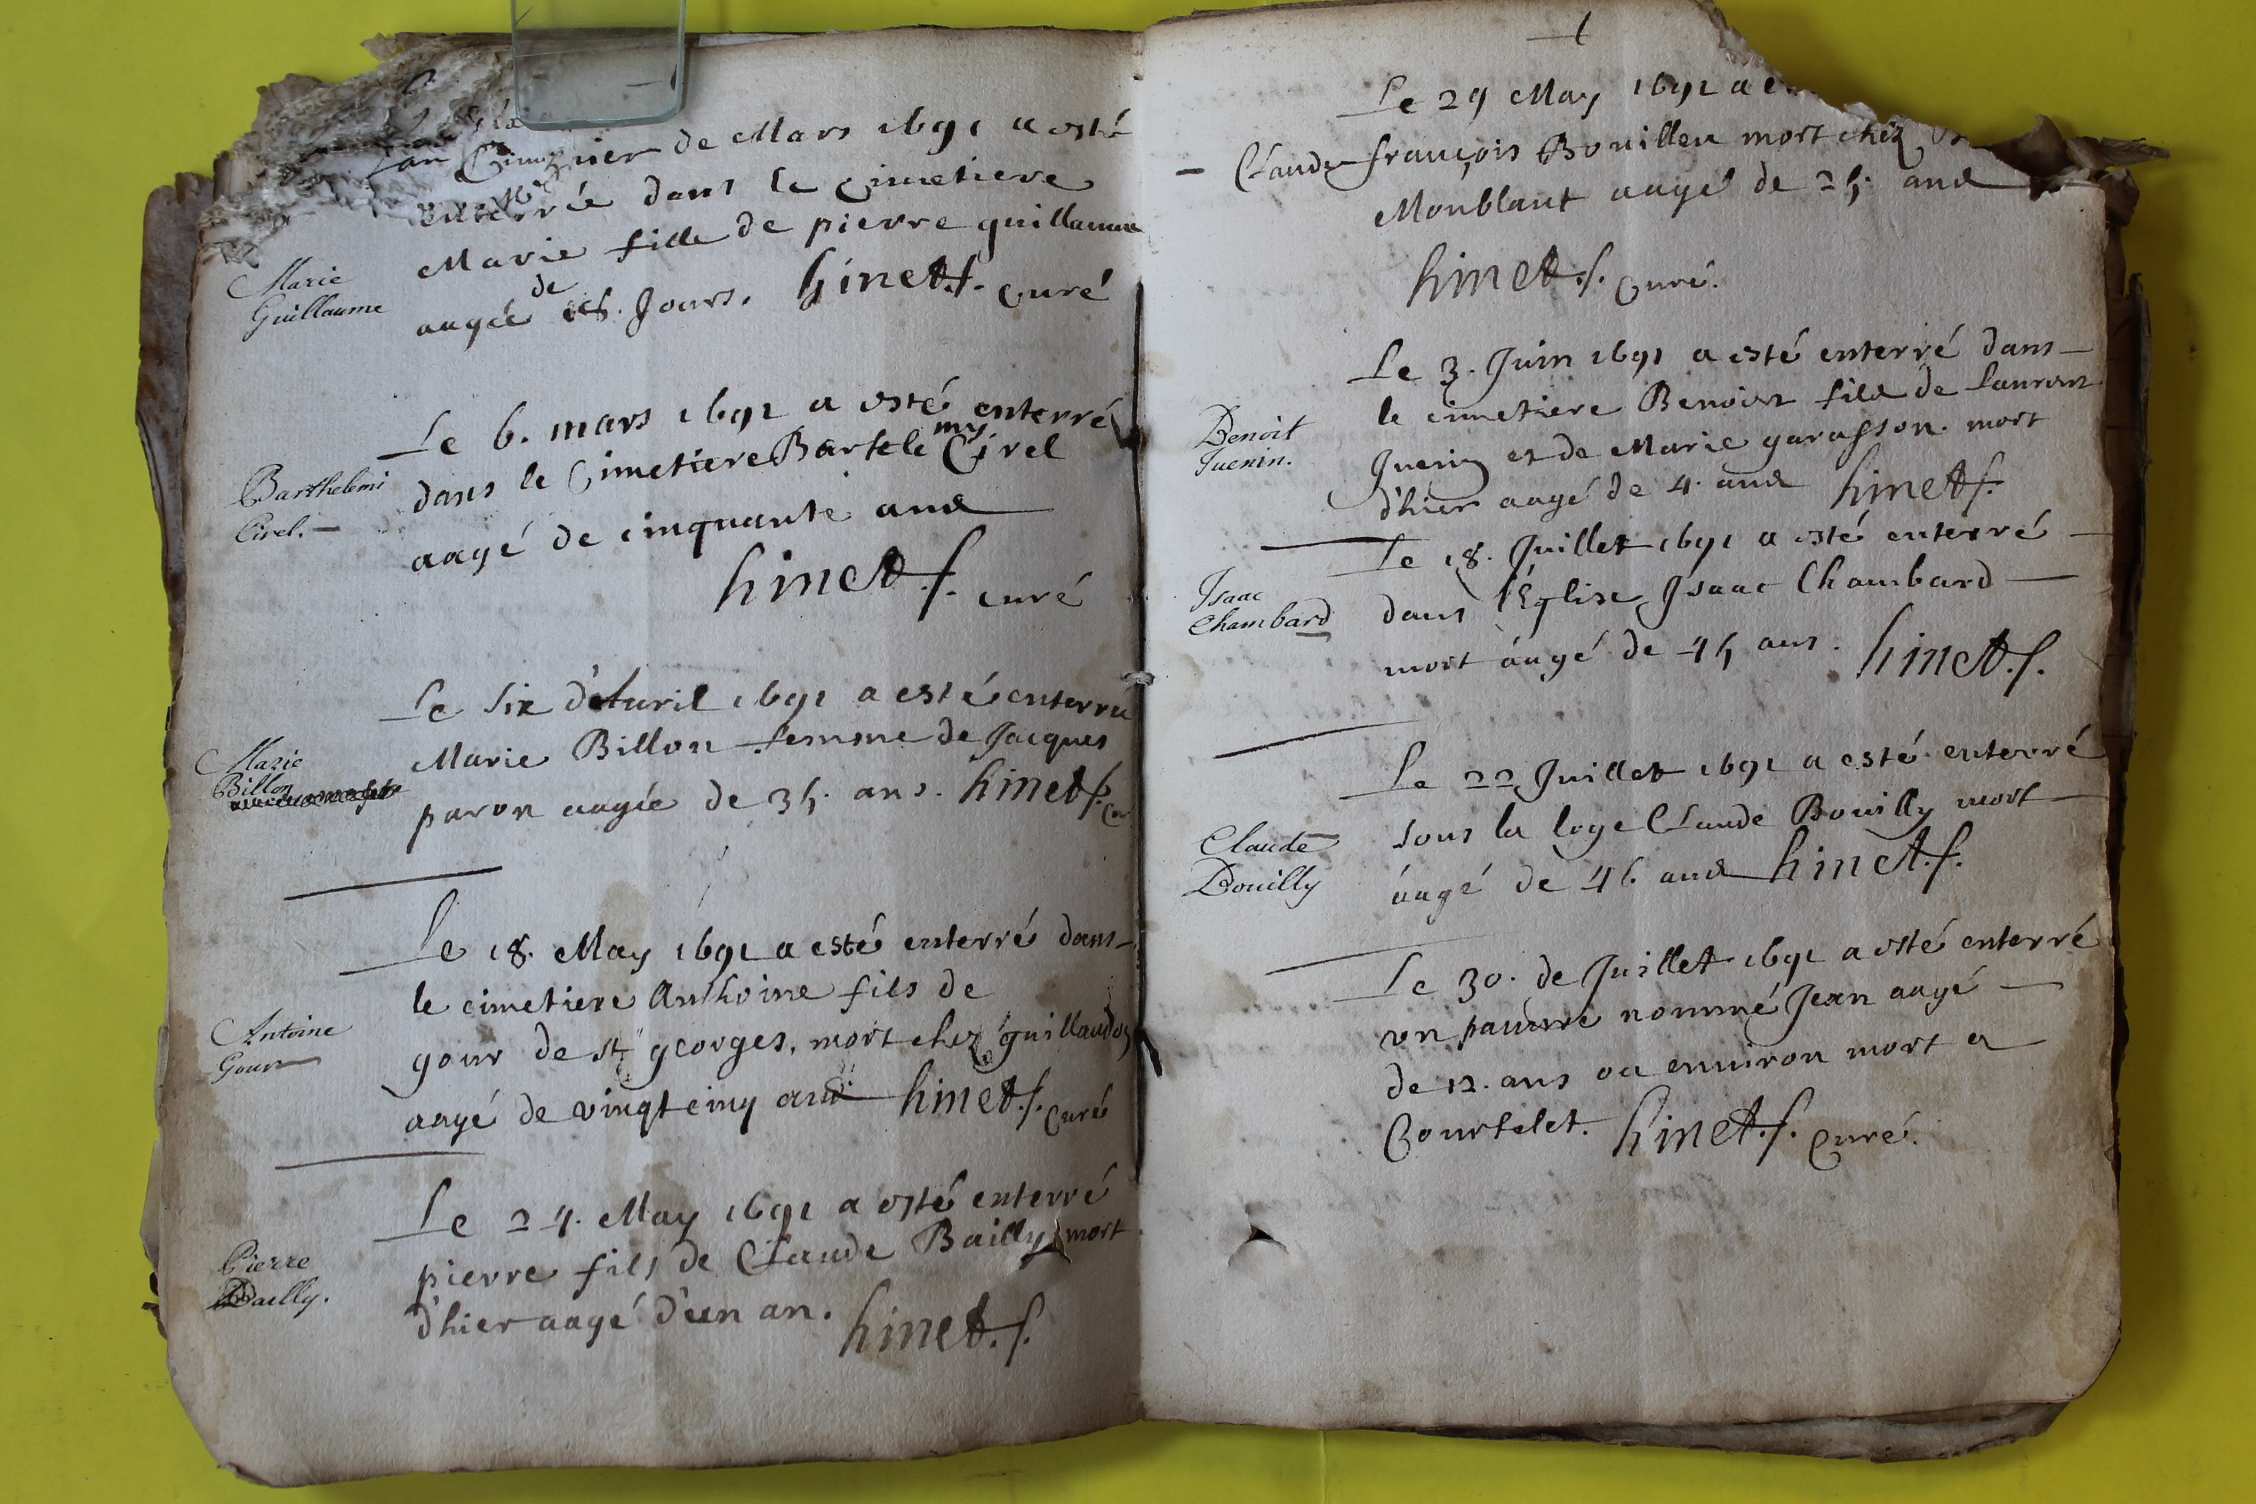 de Mars 1691 a esté
enterrée dans le cimetiere
Marie fille de pierre guillaume
Marie
Guillaume
aagée de Jours. hinet f. curé
Le 6. mars 1691 a esté enterré
dans le Cimetiere Bartelemy Cirel
Barthelemi
Cirel.
aagé de cinquante ans
hinet f. curé
Le six d'Auril 1691 a esté enterrée
Marie Billon femme de Jacques
Marie
Billon
paron aagée de 35. ans. hinet f. Cur
Le 18. May 1691 a esté enterré dans
le cimetiere Anthoine fils de
Antoine
Gour
gour de st georges, mort chez guillaudoz
aagé de vingt cinq ans hinet f. curé
Le 24. May 1691 a esté enterré
pierre fils de Claude Bailly mort
Pierre
Bailly.
d'hier aagé d'un an. hinet f.
1
Le 29 May 1691 a e
Claude françois Bouilleu mort chez
Monblant aagé de 25. ans
hinet f. Curé.
Le 3. Juin 1691 a esté enterré dans
le cimetiere Benoist fils de Laurent
Benoit
Guenin.
Guenin et de Marie garasson. mort
d'hier aagé de 4. ans hinet f.
Le 18. Juillet 1691 a esté enterré
dans l'Eglise Isaac Chambard
Isaac
Chambard
mort aagé de 45 ans. hinet f.
Le 22 Juillet 1691 a esté enterré
sous la loge Claude Bouilly mort
Claude
Bouilly
aagé de 46 ans hinet f.
Le 30. de Juillet 1691 a esté enterré
vn pauure nommé Jean aagé
de 12. ans ou enuiron mort a
Courtelet. hinet f. Curé.